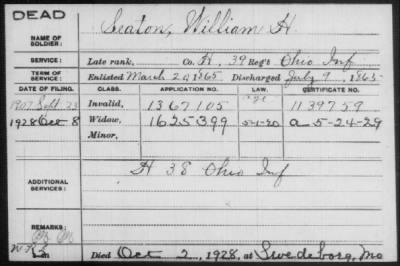 DEAD
NAME OF SOLDIER: Seaton, William H.
SERVICE: Late rank, Co. H, 39 Reg't Ohio Inf
TERM OF SERVICE: Enlisted March 20, 1865 Discharged July 9, 1865
DATE OF FILING. CLASS. APPLICATION NO. LAW. CERTIFICATE NO.
1907 Sept. 23 Invalid, 1367105 1139759
1928 Oct 8 Widow, 1625399 5-1-20 a 5-24-29
Minor,
ADDITIONAL SERVICES: H 38 Ohio Inf
REMARKS:
Died Oct 2, 1928, at Swedeborg, Mo